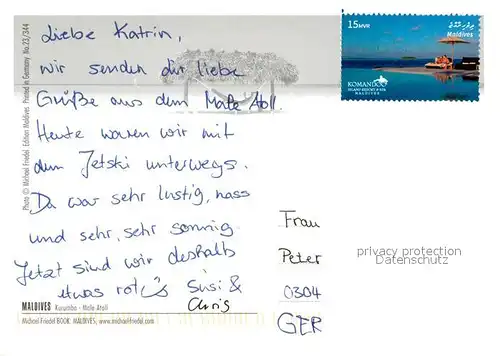 Liebe Katrin,
wir senden dir liebe
Grüße aus dem Male Atoll.
Heute waren wir mit
dem Jetski unterwegs.
Da war sehr lustig, nass
und sehr, sehr sonnig.
Jetzt sind wir deshalb
etwas rot Susi &
Chris
Frau
Peter
0304
GER
privacy protection
Datenschutz
15 MVR
Maldives
KOMANDOO
ISLAND RESORT & SPA
MALDIVES
MALDIVES Kurumba - Male Atoll
Michael Friedel BOOK: MALDIVES, www.michaelfriedel.com
Photo © Michael Friedel Edition Maldives Printed in Germany No.23/344